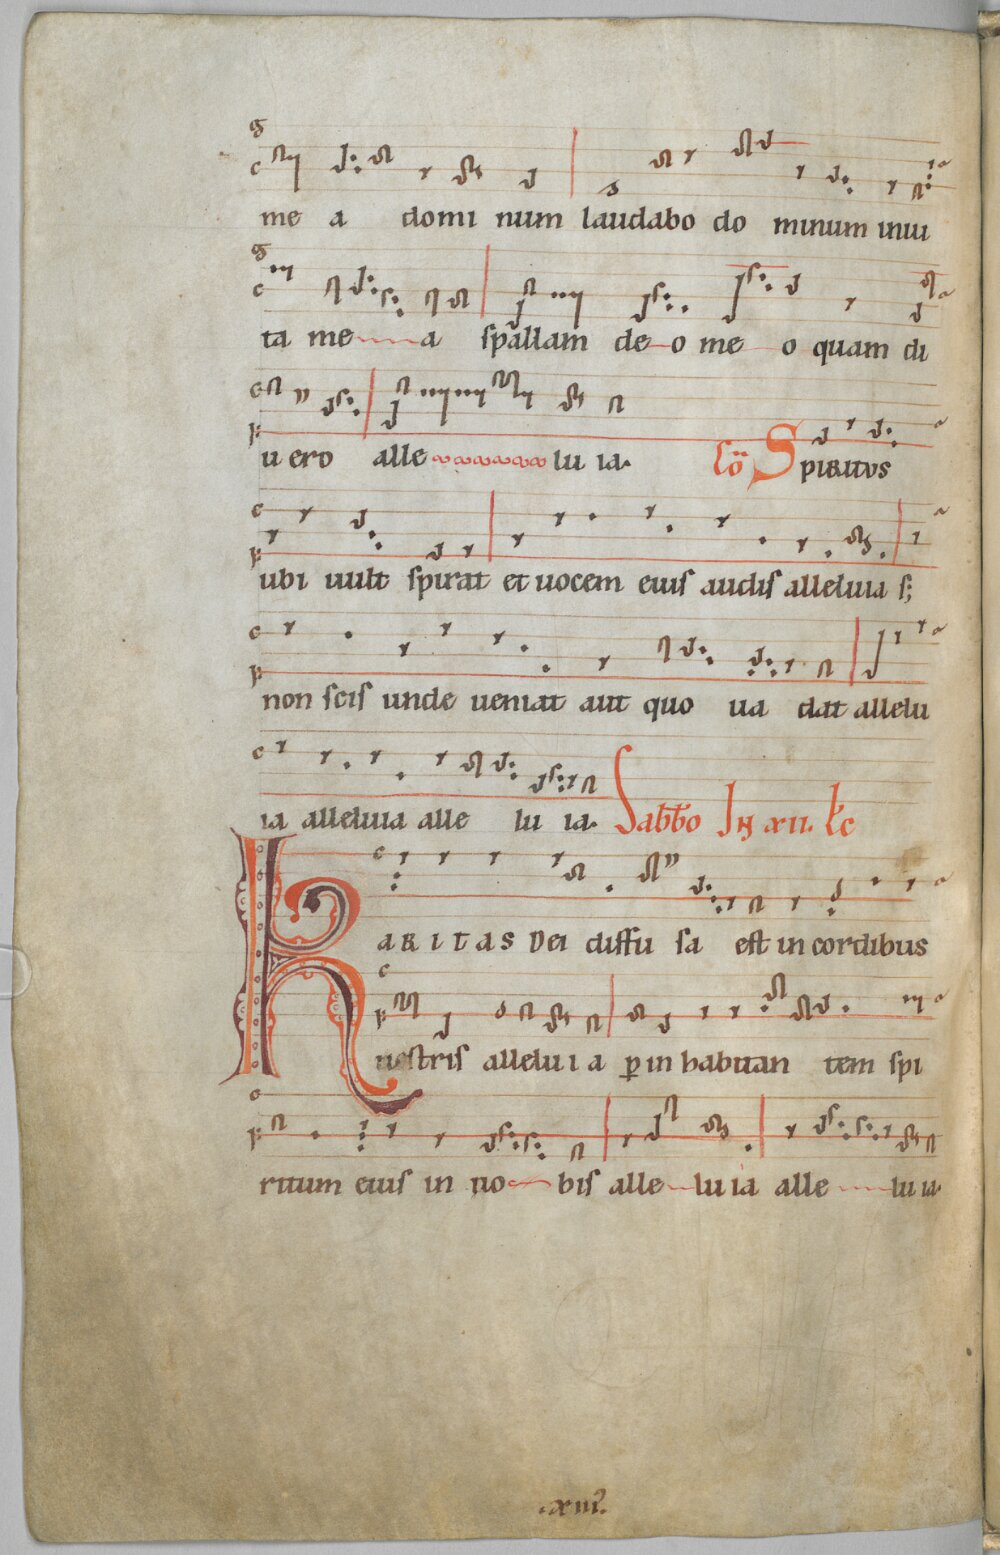 me a domi num laudabo do minum inui
ta me a spallam de o me o quam di
u ero alle lu ia. Co Spiritus
ubi uult spirat et uocem eius audis alleluia s;
non scis unde ueniat aut quo ua dat allelu
ia alleluia alle lu ia. Sabbo In xii. lc
KARITAS Dei diffu sa est in cordibus
uestris allelu i a p in habitan tem spi
ritum eius in no bis alle lu ia alle lu ia.
.xiii.